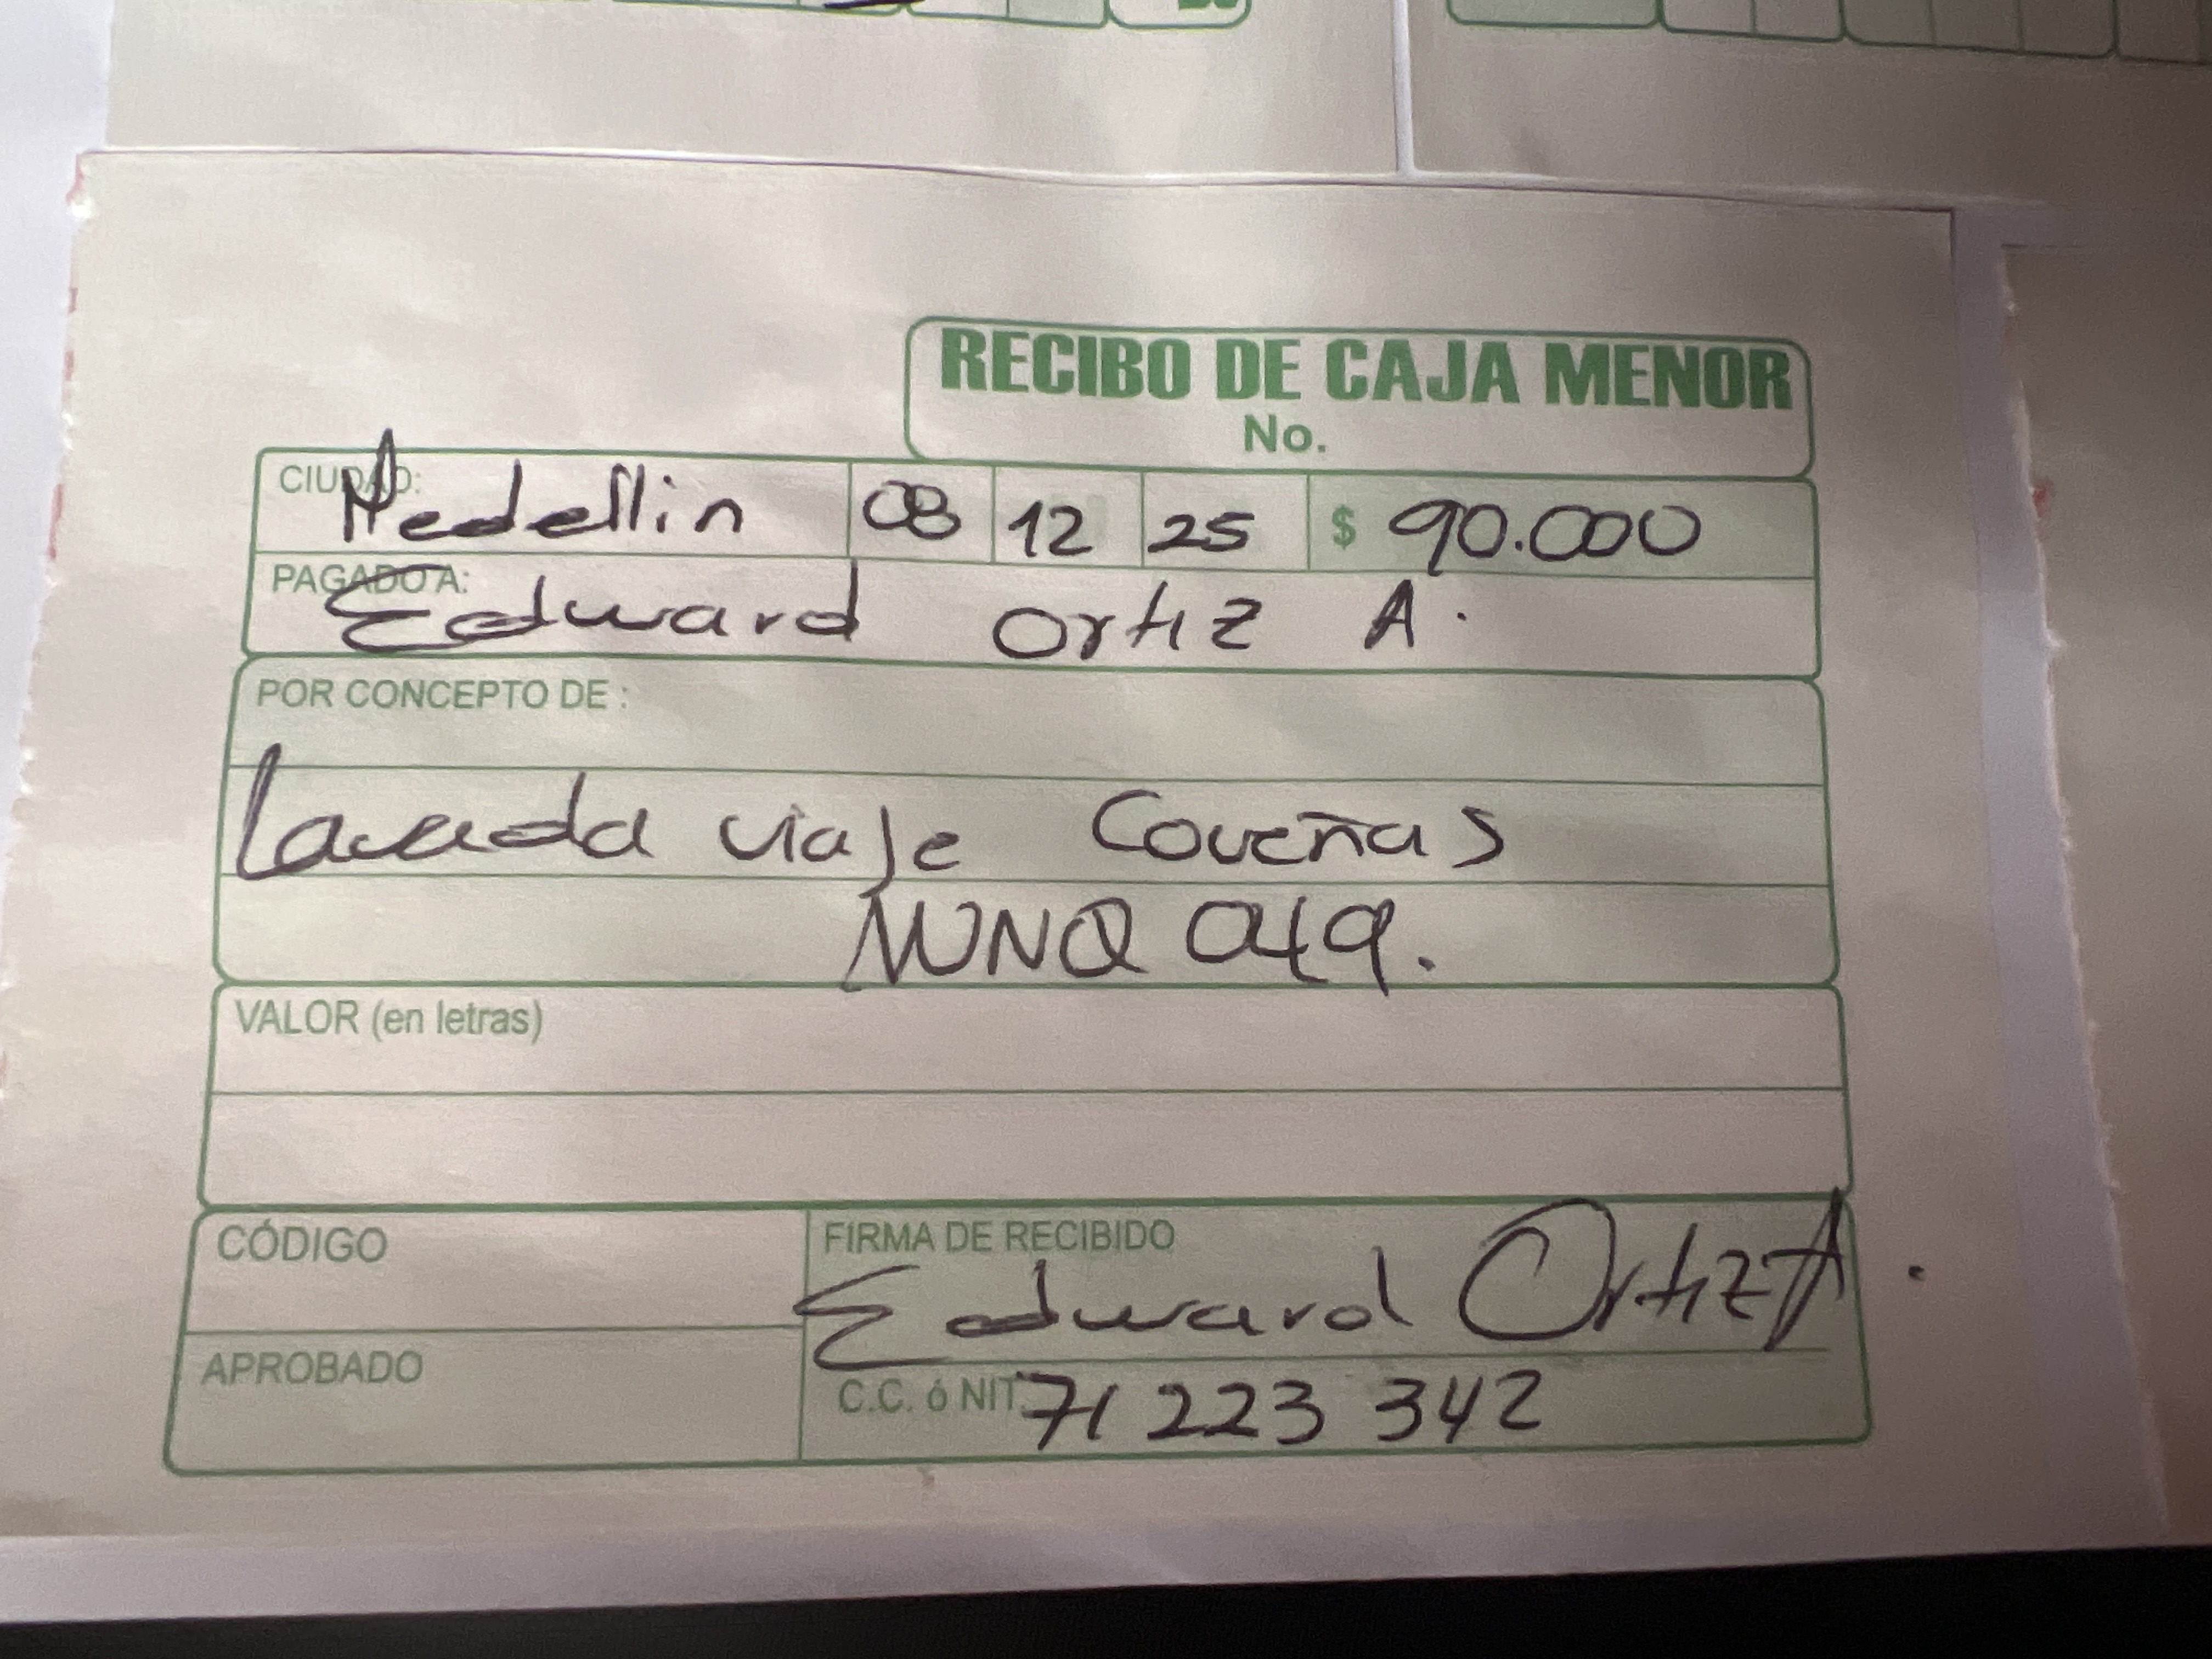 RECIBO DE CAJA MENOR
No.
CIUDAD: Medellin 08 12 25 $ 90.000
PAGADO A: Edward Ortiz A.
POR CONCEPTO DE :
Lavada viaje Coveñas
NUNQ 049.
VALOR (en letras)
CÓDIGO
FIRMA DE RECIBIDO
Edward Ortiz A.
APROBADO
C.C. ó NIT 71 223 342